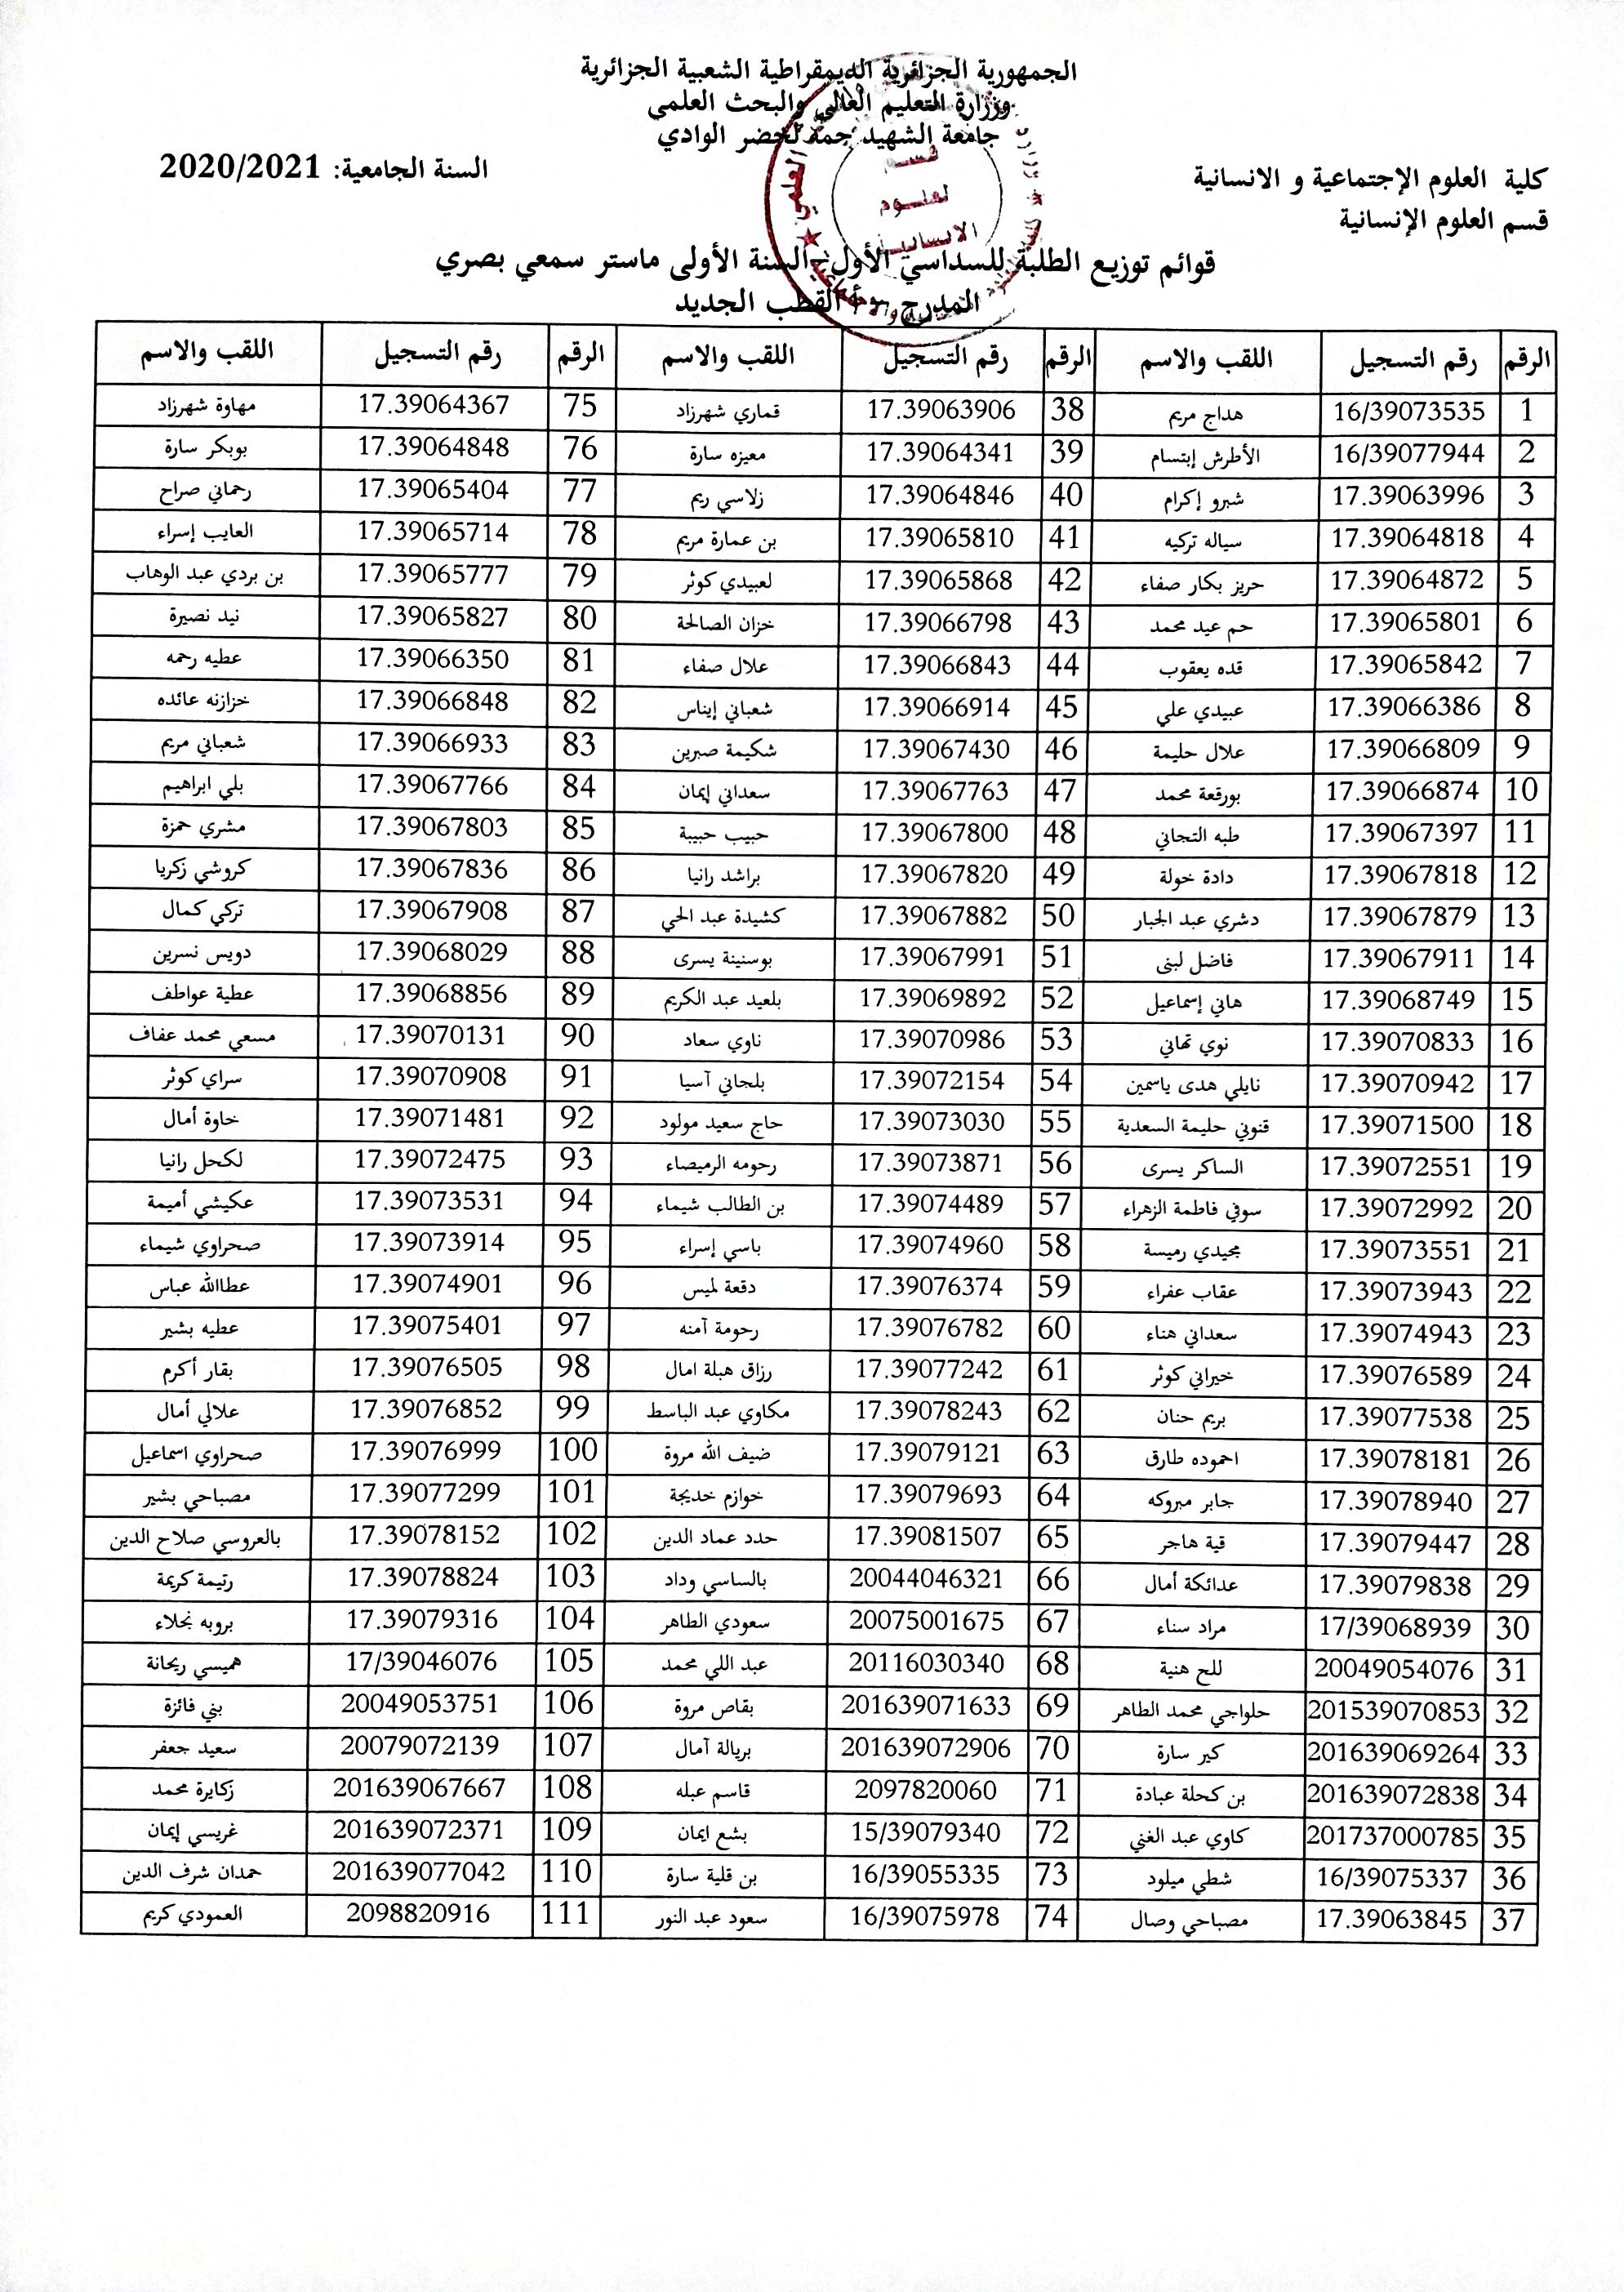 الجمهورية الجزائرية الديمقراطية الشعبية الجزائرية
وزارة التعليم العالي والبحث العلمي
جامعة الشهيد حمة لخضر الوادي
كلية العلوم الإجتماعية و الانسانية
السنة الجامعية: 2020/2021
قسم العلوم الإنسانية
قسم
لعلوم
الانسانية
العلمي
قوائم توزيع الطلبة للسداسي الأول- السنة الأولى ماستر سمعي بصري
المدرج - أ القطب الجديد
الرقم رقم التسجيل اللقب والاسم الرقم رقم التسجيل اللقب والاسم الرقم رقم التسجيل اللقب والاسم
1 16/39073535 هداج مريم 38 17.39063906 قماري شهرزاد 75 17.39064367 مهاوة شهرزاد
2 16/39077944 الأطرش إبتسام 39 17.39064341 معيزه سارة 76 17.39064848 بوبكر سارة
3 17.39063996 شبرو إكرام 40 17.39064846 زلاسي ريم 77 17.39065404 رحماني صراح
4 17.39064818 سياله تركيه 41 17.39065810 بن عمارة مريم 78 17.39065714 العايب إسراء
5 17.39064872 حريز بكار صفاء 42 17.39065868 لعبيدي كوثر 79 17.39065777 بن بردي عبد الوهاب
6 17.39065801 حم عيد محمد 43 17.39066798 خزان الصالحة 80 17.39065827 نيد نصيرة
7 17.39065842 قده يعقوب 44 17.39066843 علال صفاء 81 17.39066350 عطيه رحمه
8 17.39066386 عبيدي علي 45 17.39066914 شعباني إيناس 82 17.39066848 خزازنه عائده
9 17.39066809 علال حليمة 46 17.39067430 شكيمة صبرين 83 17.39066933 شعباني مريم
10 17.39066874 بورقعة محمد 47 17.39067763 سعداني إيمان 84 17.39067766 بلي ابراهيم
11 17.39067397 طبه التجاني 48 17.39067800 حبيب حبيبة 85 17.39067803 مشري حمزة
12 17.39067818 دادة خولة 49 17.39067820 براشد رانيا 86 17.39067836 كروشي زكريا
13 17.39067879 دشري عبد الجبار 50 17.39067882 كشيدة عبد الحي 87 17.39067908 تركي كمال
14 17.39067911 فاضل لبنى 51 17.39067991 بوسنينة يسرى 88 17.39068029 دويس نسرين
15 17.39068749 هاني إسماعيل 52 17.39069892 بلعيد عبد الكريم 89 17.39068856 عطية عواطف
16 17.39070833 نوي تهاني 53 17.39070986 ناوي سعاد 90 17.39070131 مسعي محمد عفاف
17 17.39070942 نايلي هدى ياسمين 54 17.39072154 بلجاني آسيا 91 17.39070908 سراي كوثر
18 17.39071500 قنوني حليمة السعدية 55 17.39073030 حاج سعيد مولود 92 17.39071481 خاوة أمال
19 17.39072551 الساكر يسرى 56 17.39073871 رحومه الرميصاء 93 17.39072475 لكحل رانيا
20 17.39072992 سوفي فاطمة الزهراء 57 17.39074489 بن الطالب شيماء 94 17.39073531 عكيشي أميمة
21 17.39073551 مجيدي رميسة 58 17.39074960 باسي إسراء 95 17.39073914 صحراوي شيماء
22 17.39073943 عقاب عفراء 59 17.39076374 دقعة لميس 96 17.39074901 عطاالله عباس
23 17.39074943 سعداني هناء 60 17.39076782 رحومة آمنه 97 17.39075401 عطيه بشير
24 17.39076589 خيراني كوثر 61 17.39077242 رزاق هبلة امال 98 17.39076505 بقار أكرم
25 17.39077538 بريم حنان 62 17.39078243 مكاوي عبد الباسط 99 17.39076852 علالي أمال
26 17.39078181 احموده طارق 63 17.39079121 ضيف الله مروة 100 17.39076999 صحراوي اسماعيل
27 17.39078940 جابر مبروكه 64 17.39079693 خوازم خديجة 101 17.39077299 مصباحي بشير
28 17.39079447 قية هاجر 65 17.39081507 حدد عماد الدين 102 17.39078152 بالعروسي صلاح الدين
29 17.39079838 عدائكة أمال 66 20044046321 بالساسي وداد 103 17.39078824 رتيمة كريمة
30 17/39068939 مراد سناء 67 20075001675 سعودي الطاهر 104 17.39079316 بروبه نجلاء
31 20049054076 للح هنية 68 20116030340 عبد اللي محمد 105 17/39046076 هميسي ريحانة
32 201539070853 حلواجي محمد الطاهر 69 201639071633 بقاص مروة 106 20049053751 بني فائزة
33 201639069264 كير سارة 70 201639072906 بريالة آمال 107 20079072139 سعيد جعفر
34 201639072838 بن كحلة عبادة 71 2097820060 قاسم عبله 108 201639067667 زكايرة محمد
35 201737000785 كاوي عبد الغني 72 15/39079340 بشع ايمان 109 201639072371 غريسي إيمان
36 16/39075337 شطي ميلود 73 16/39055335 بن قلية سارة 110 201639077042 حمدان شرف الدين
37 17.39063845 مصباحي وصال 74 16/39075978 سعود عبد النور 111 2098820916 العمودي كريم